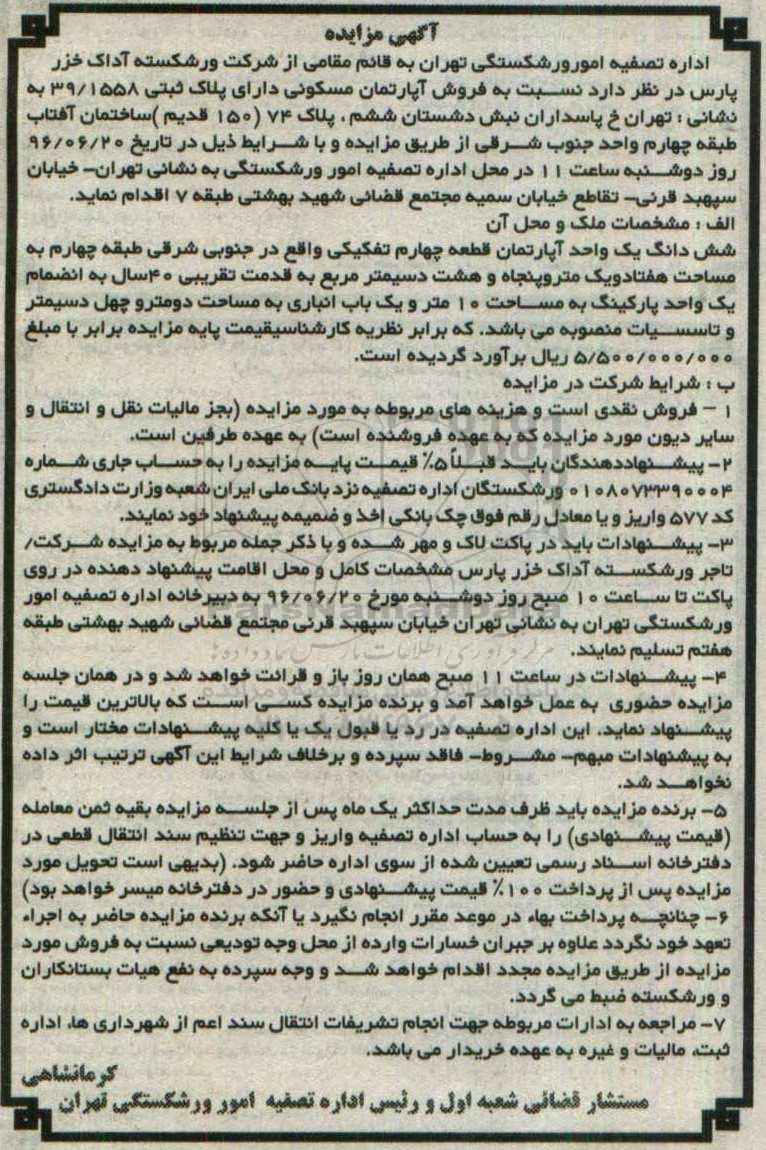 آگهی مزایده
اداره تصفیه امورورشکستگی تهران به قائم مقامی از شرکت ورشکسته آداک خزر
پارس در نظر دارد نسبت به فروش آپارتمان مسکونی دارای پلاک ثبتی ۳۹/۱۵۵۸ به
نشانی : تهران خ پاسداران نبش دشستان ششم ، پلاک ۷۴ (۱۵۰ قدیم )ساختمان آفتاب
طبقه چهارم واحد جنوب شرقی از طریق مزایده و با شرایط ذیل در تاریخ ۹۶/۰۶/۲۰
روز دوشنبه ساعت ۱۱ در محل اداره تصفیه امور ورشکستگی به نشانی تهران– خیابان
سپهبد قرنی– تقاطع خیابان سمیه مجتمع قضائی شهید بهشتی طبقه ۷ اقدام نماید.
الف : مشخصات ملک و محل آن
شش دانگ یک واحد آپارتمان قطعه چهارم تفکیکی واقع در جنوبی شرقی طبقه چهارم به
مساحت هفتادویک متروپنجاه و هشت دسیمتر مربع به قدمت تقریبی ۴۰سال به انضمام
یک واحد پارکینگ به مساحت ۱۰ متر و یک باب انباری به مساحت دومترو چهل دسیمتر
و تاسسیات منصوبه می باشد. که برابر نظریه کارشناسیقیمت پایه مزایده برابر با مبلغ
۵/۵۰۰/۰۰۰/۰۰۰ ریال برآورد گردیده است.
ب : شرایط شرکت در مزایده
۱ – فروش نقدی است و هزینه های مربوطه به مورد مزایده (بجز مالیات نقل و انتقال و
سایر دیون مورد مزایده که به عهده فروشنده است) به عهده طرفین است.
۲– پیشنهاددهندگان باید قبلاً ۵٪ قیمت پایه مزایده را به حساب جاری شماره
۰۱۰۸۰۷۳۳۹۰۰۰۴ ورشکستگان اداره تصفیه نزد بانک ملی ایران شعبه وزارت دادگستری
کد ۵۷۷ واریز و یا معادل رقم فوق چک بانکی اخذ و ضمیمه پیشنهاد خود نمایند.
۳– پیشنهادات باید در پاکت لاک و مهر شده و با ذکر جمله مربوط به مزایده شرکت/
تاجر ورشکسته آداک خزر پارس مشخصات کامل و محل اقامت پیشنهاد دهنده در روی
پاکت تا ساعت ۱۰ صبح روز دوشنبه مورخ ۹۶/۰۶/۲۰ به دبیرخانه اداره تصفیه امور
ورشکستگی تهران به نشانی تهران خیابان سپهبد قرنی مجتمع قضائی شهید بهشتی طبقه
هفتم تسلیم نمایند.
۴– پیشنهادات در ساعت ۱۱ صبح همان روز باز و قرائت خواهد شد و در همان جلسه
مزایده حضوری به عمل خواهد آمد و برنده مزایده کسی است که بالاترین قیمت را
پیشنهاد نماید. این اداره تصفیه در رد یا قبول یک یا کلیه پیشنهادات مختار است و
به پیشنهادات مبهم– مشروط– فاقد سپرده و برخلاف شرایط این آگهی ترتیب اثر داده
نخواهد شد.
۵– برنده مزایده باید ظرف مدت حداکثر یک ماه پس از جلسه مزایده بقیه ثمن معامله
(قیمت پیشنهادی) را به حساب اداره تصفیه واریز و جهت تنظیم سند انتقال قطعی در
دفترخانه اسناد رسمی تعیین شده از سوی اداره حاضر شود. (بدیهی است تحویل مورد
مزایده پس از پرداخت ۱۰۰٪ قیمت پیشنهادی و حضور در دفترخانه میسر خواهد بود)
۶– چنانچه پرداخت بهاء در موعد مقرر انجام نگیرد یا آنکه برنده مزایده حاضر به اجراء
تعهد خود نگردد علاوه بر جبران خسارات وارده از محل وجه تودیعی نسبت به فروش مورد
مزایده از طریق مزایده مجدد اقدام خواهد شد و وجه سپرده به نفع هیات بستانکاران
و ورشکسته ضبط می گردد.
۷– مراجعه به ادارات مربوطه جهت انجام تشریفات انتقال سند اعم از شهرداری ها، اداره
ثبت، مالیات و غیره به عهده خریدار می باشد.
کرمانشاهی
مستشار قضائی شعبه اول و رئیس اداره تصفیه امور ورشکستگی تهران